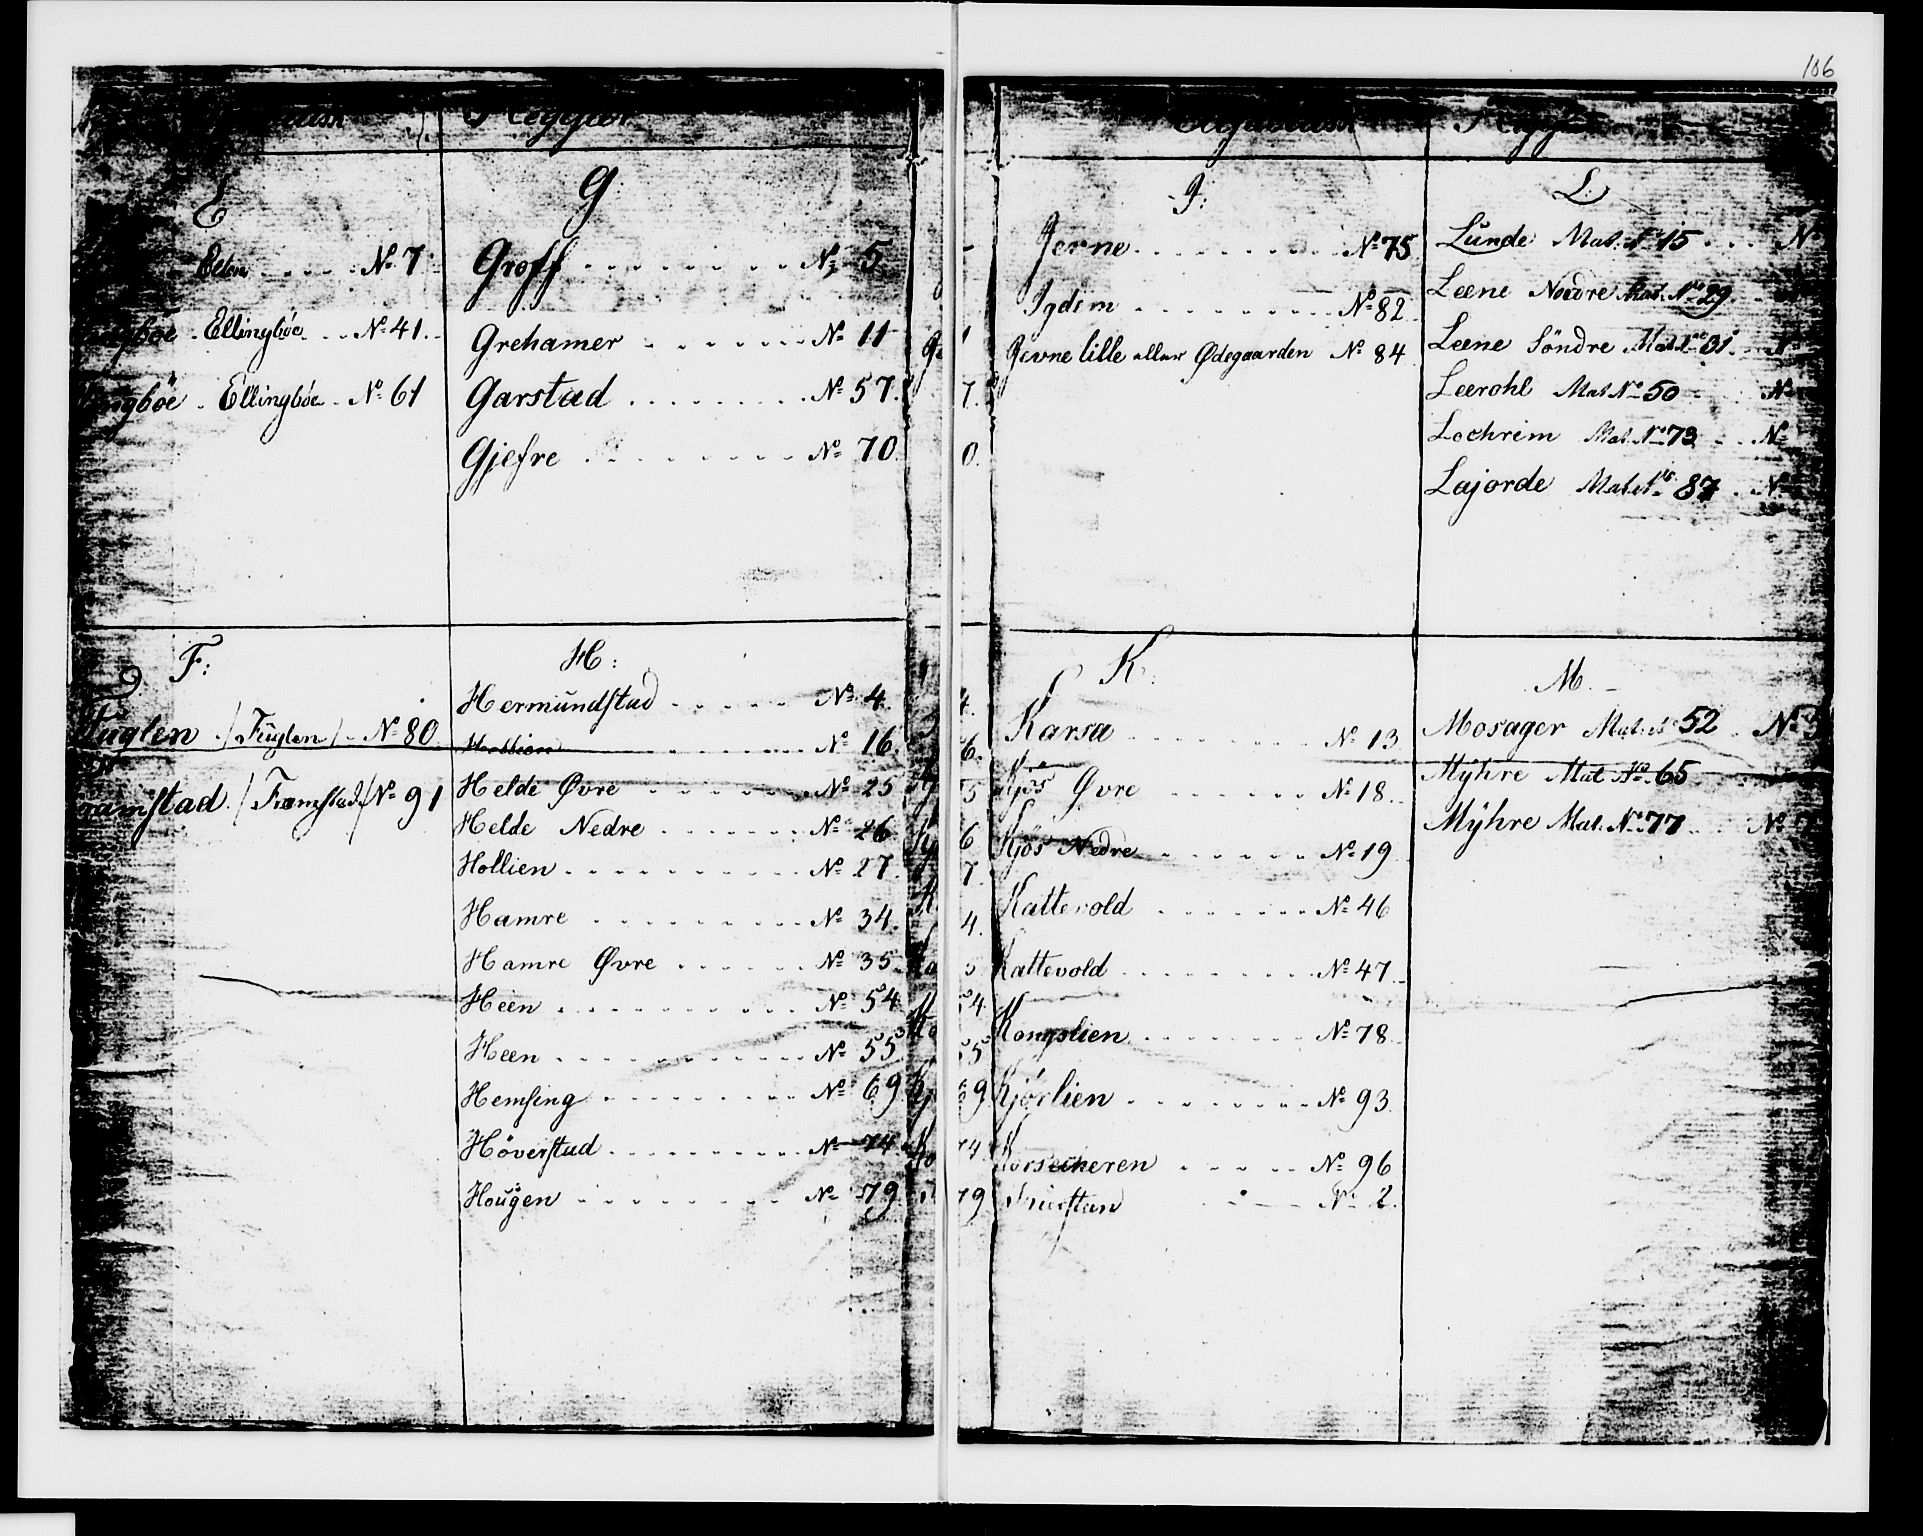 106
E
Ellen . . . . . No 7
Ellingböe . . No 41.
Ellingböe . No 61
F:
Fuglen /Fuglen/ No 80
/Framstad/ No 91
G:
Groff . . . . . . . . No 5
Grehamer . . . . . . . No 11
Garstad . . . . . . . . No 57.
Gjefre . . . . . . . . No 70
H:
Hermundstad . . . . . No 4.
No 16.
Helde Øvre . . . . . . No 25
Helde Nedre . . . . . . No 26
Hollien . . . . . . . . . No 27.
Hamre . . . . . . . . No 34.
Hamre Øvre . . . . . . No 35
Heen . . . . . . . . . . No 54
Heen . . . . . . . . . . No 55
Hemsing . . . . . . . . No 69
Höverstad . . . . . . . . No 74
Hougen . . . . . . . . No 79.
J:
Jerne . . . . . . . . No 75
Igdim . . . . . . . . No 82
Jevne lille eller Ødegaarden No 84
K:
Karsa . . . . . . . . No 13
Kjös Øvre . . . . . . No 18.
Kjös Nedre . . . . . . No 19
Kattevold . . . . . . . No 46
Kattevold . . . . . . . . No 47.
Kongslien . . . . . . . No 78.
Kjørlien . . . . . . . . No 93.
No 96
No 2.
L:
Lunde Mat. No 15 . . . No
Leene Nedre Mat. No 29
Leene Söndre Mat. No 31. No
Leerohl Mat No 50 No
Lochrim Mat. No 73 . . No
Lajorde Mat. No 87 . No
M.
Mosager Mat. No 52 . No
Myhre Mat No 65
Myhre Mat. No 77 . . No